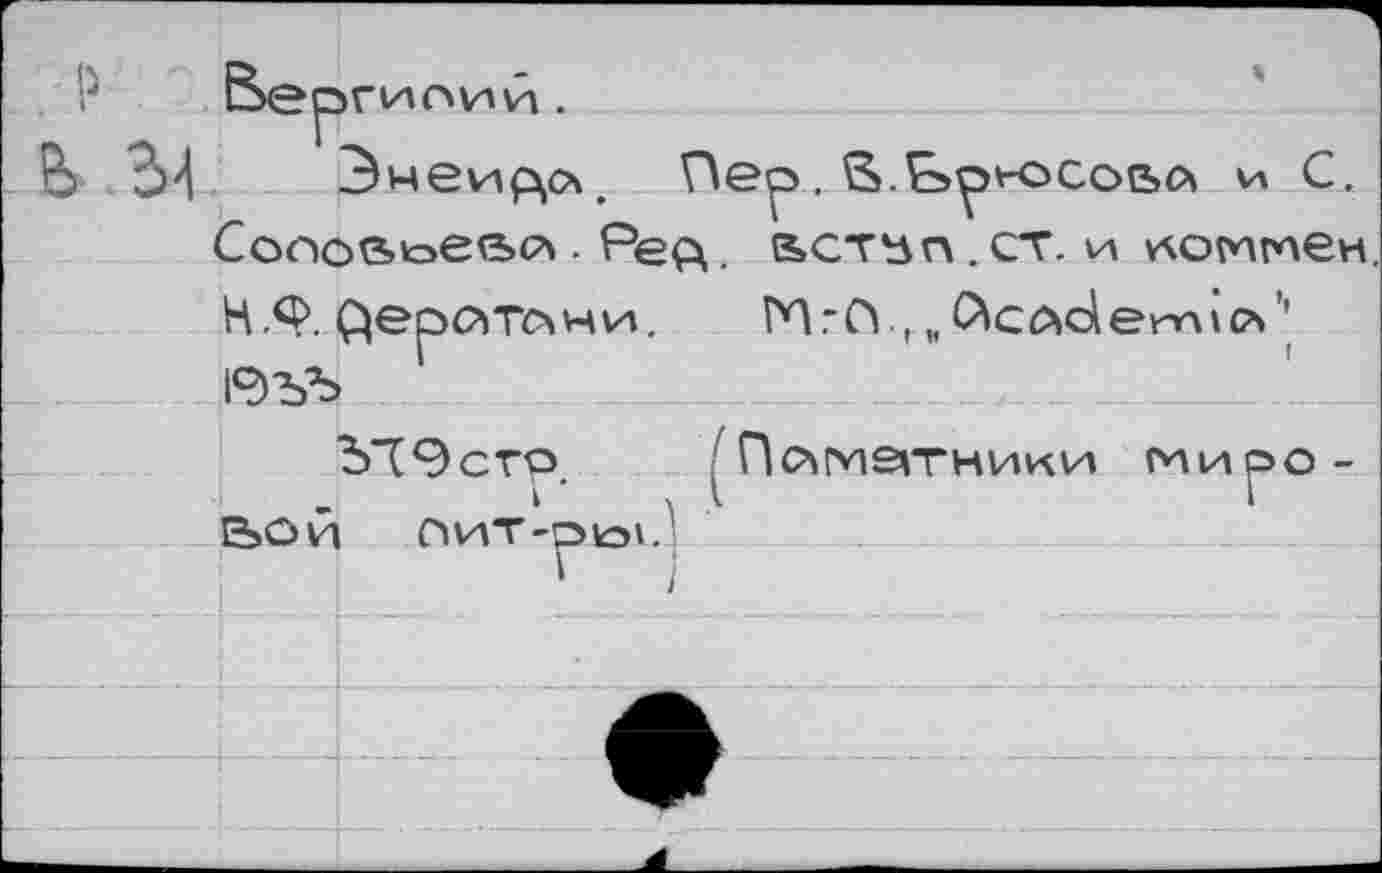 Р Вергилий.
В 31 Энеида. Пер. В.Брюсова и С.
Соловьева. Ред. вступ. ст. и коммен.
Н.Ф. Дератани. М-Л., „Academia"
1933
379 стр. (Памятники миро-
вой лит-ры.)